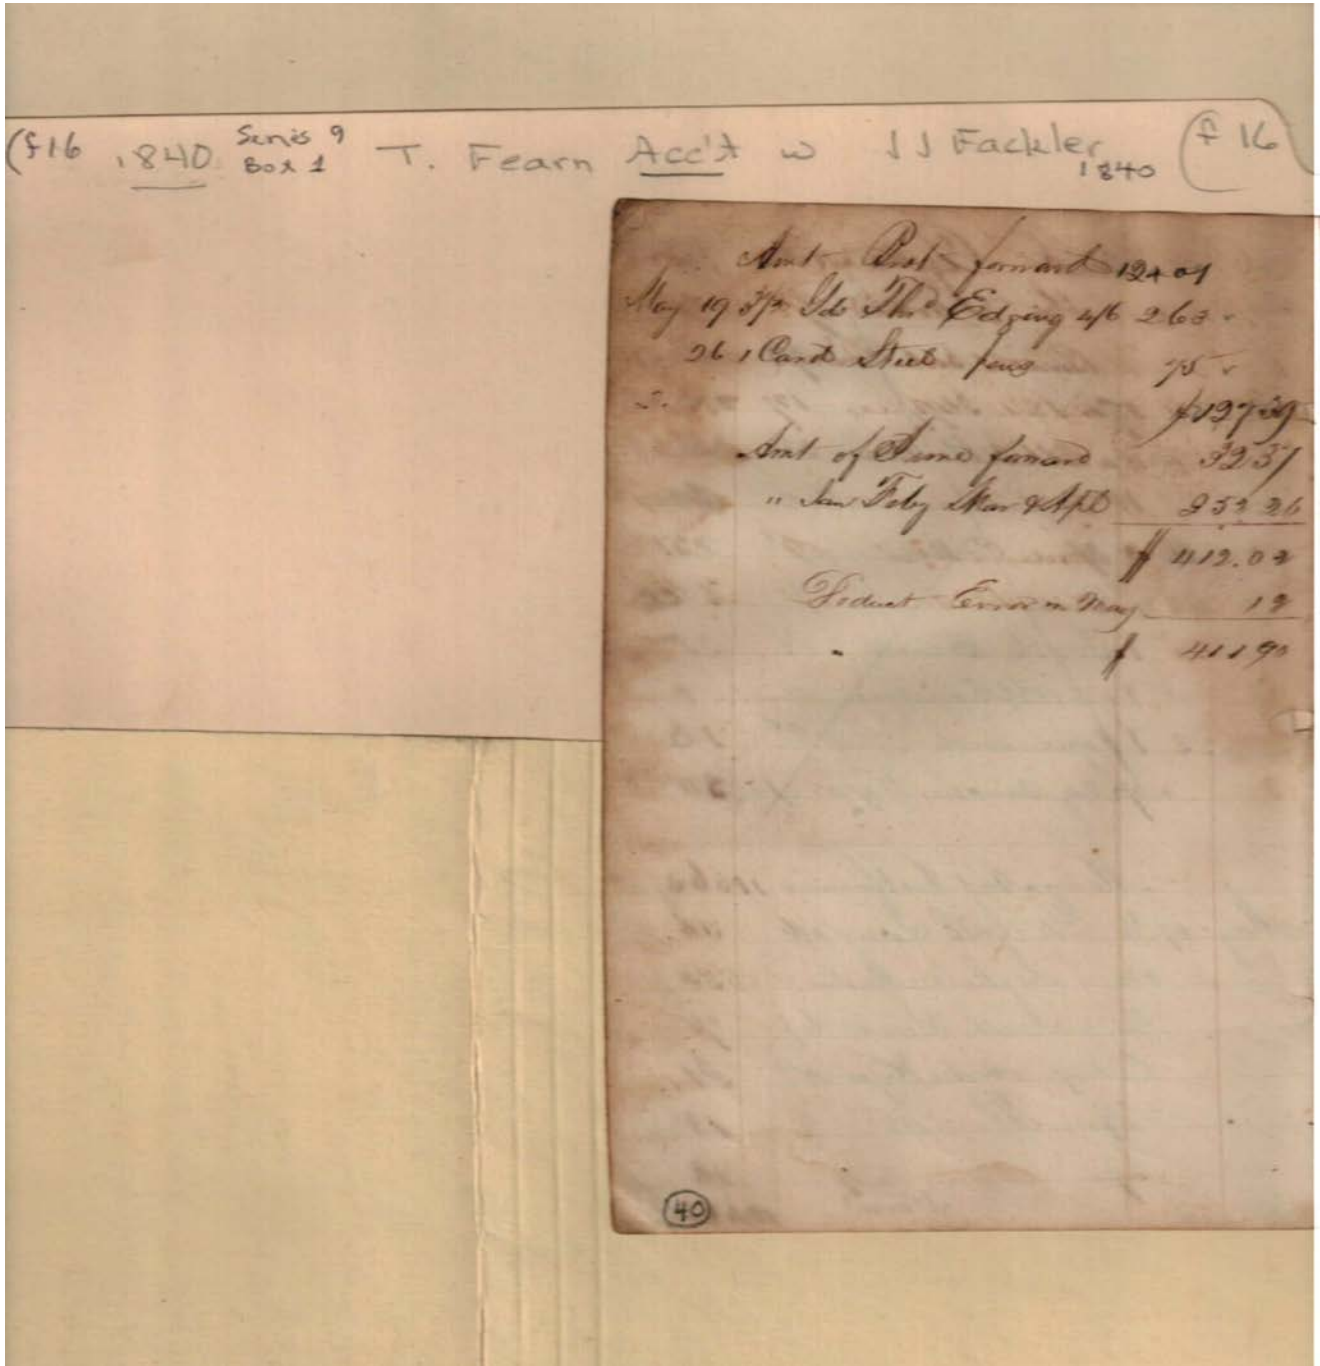 (f16 1840 Series 9 Box 1 T. Fearn Acc't w JJ Fackler 1840 (f 16
Amt Brot forward 124 01
May 19 3½ Yds Thd Edging 4/6 2 63
26 1 Card Steel pens 75
$127 39
Amt of June forward 32 37
" Jan Feby Mar & Apl 252 26
$ 412.02
Deduct Error in May 12
$ 411 90
40